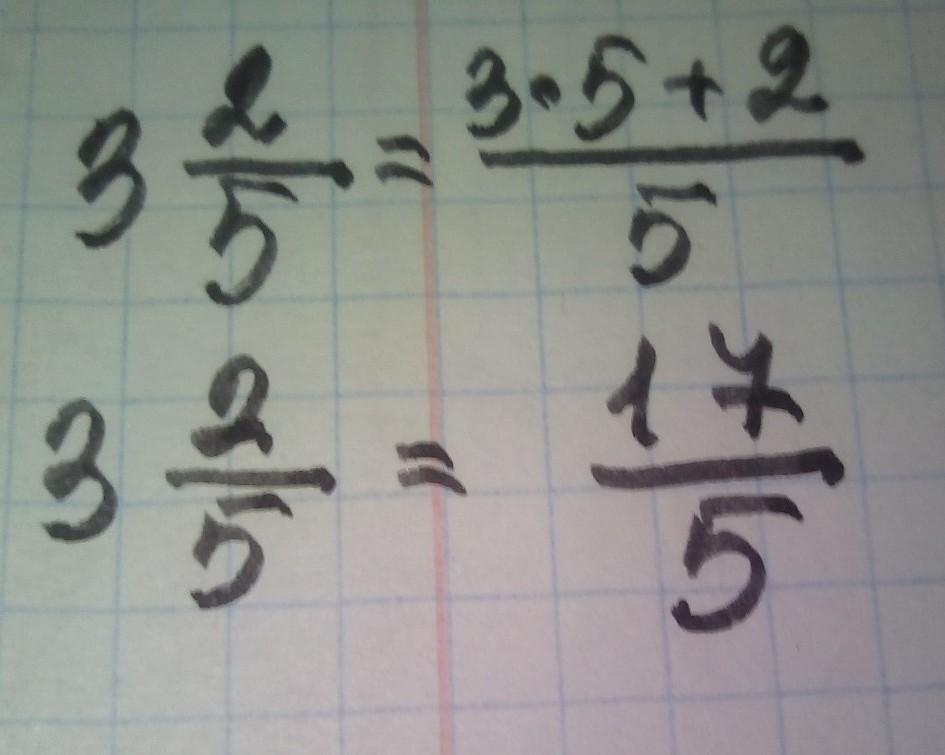 3 2/5 = (3·5+2)/5
3 2/5 = 17/5